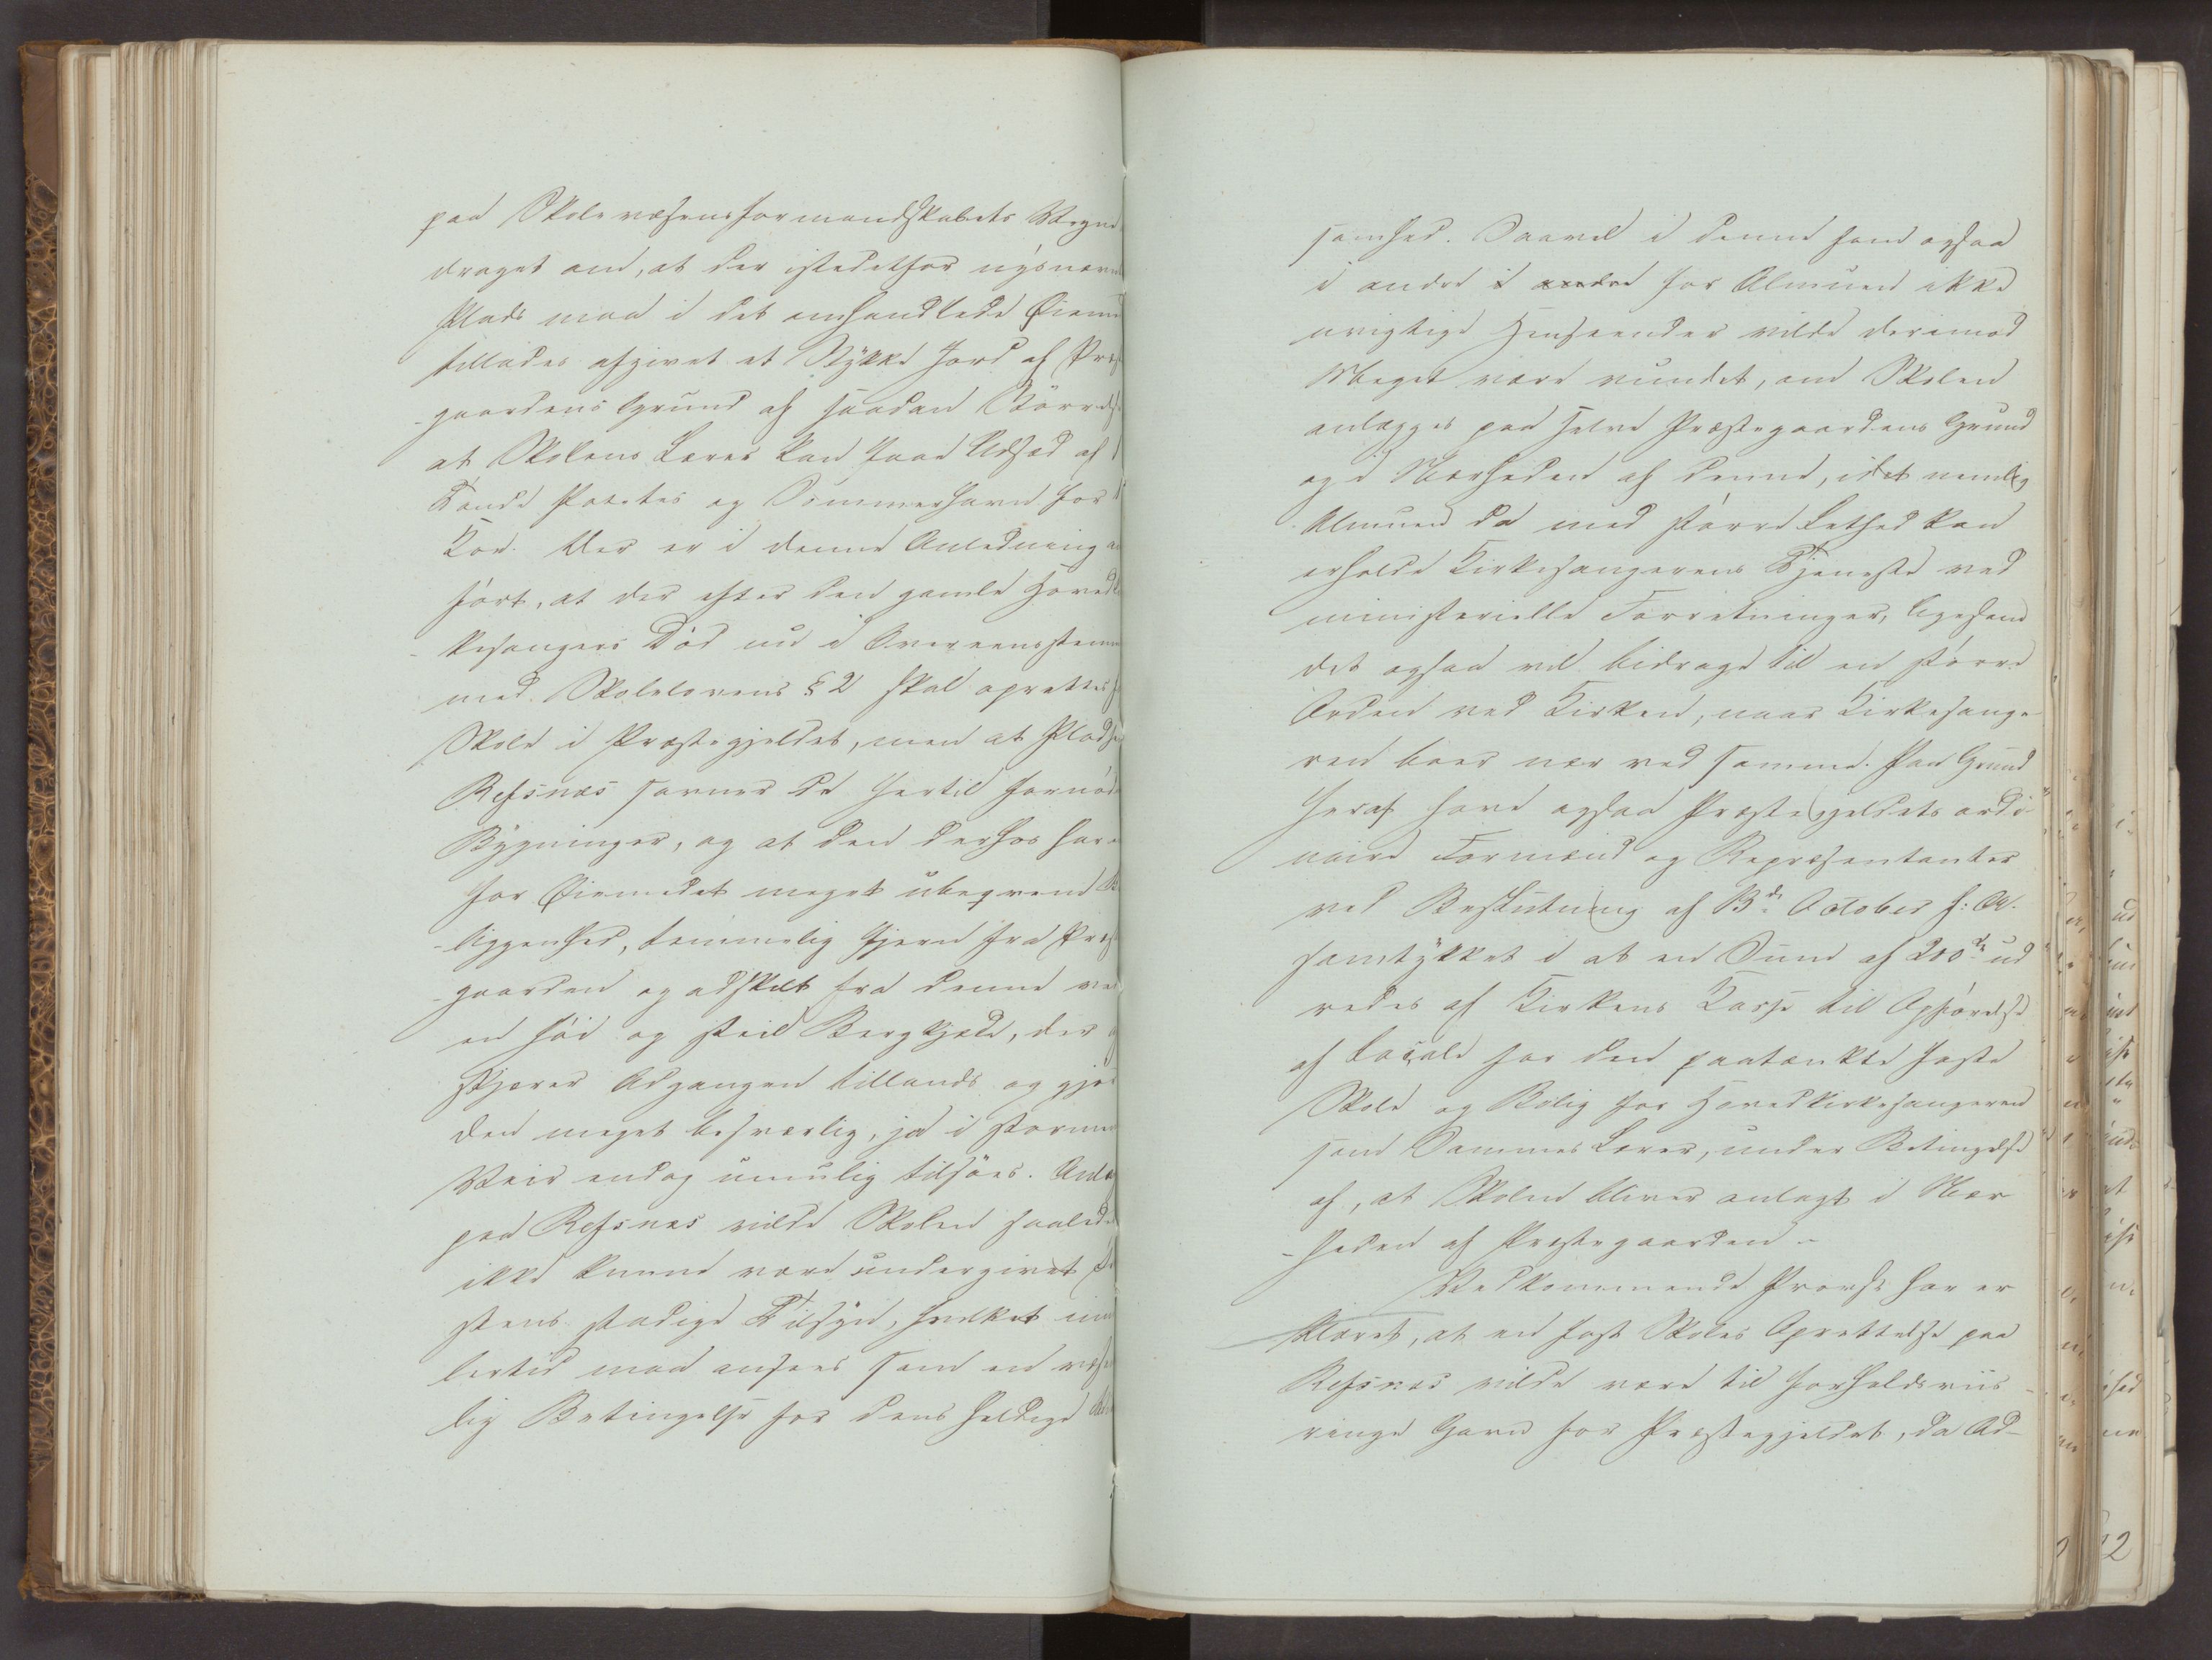 paa Skolevæsensformandskabets Vegne
draget om, at der istedetfor nysnævn
Plads maa i det omhandlede Øieme
tillades afgivet et Stykke Jord af Præ
gaardens Grund af saadan Størrelse
at Skolens Lærer kan faae Udsæd af 1
Tønde Poteter og Sommerhavn for 1
Koe. Der er i denne Anledning an
ført, at der efter den gamle Hovedki
kesangers Død nu i Overeensstemm
med Skolelovens § 2 skal oprettes
Skole i Præstegjeldet, men at Pladsen
Refsnæs savner de hertil fornødn
Bygninger, og at den derhos har en
for Øiemedet meget ubeqvem Be
liggenhed, temmelig fjern fra Præste
gaarden og adskilt fra denne ved
en høi og steil Bergkjæde, der
skjærer Adgangen tillands og gjør
den meget besværlig, ja i stormen
Veir endog umulig tilsøes. Anlag
paa Refsnæs vilde Skolen saalede
ikke kunne være undergivet Præ
stens stadige Tilsyn, hvilket imi
lertid maa ansees som en væsen
lig Betingelse for dens heldige
somhed. Saavel i denne som ogsaa
i andre i andre for Almuen ikke
uvigtige Henseender vilde derimod
Meget være vundet, om Skolen
anlægges paa selve Præstegaardens Grund
og i Nærheden af denne, idet nemlig
Almuen da med større Lethed kan
erholde Kirkesangerens Tjeneste ved
ministerielle Forretninger, ligesom
det ogsaa vil bidrage til en større
Orden ved Kirken, naar Kirkesange
ren boer nær ved samme. Paa Grund
heraf have ogsaa Præstegjeldets ordi
naire Formænd og Repræsentanter
ved Beslutning af 13de October f: A.
samtykket i at en Sum af 200 ud
redes af Kirkens Kasse til Opførelse
af Locale for den paatænkte faste
Skole og Bolig for Hovedkirkesangeren
som Sammes Lærer, under Betingelse
af, at Skolen bliver anlagt i Nær
heden af Præstegaarden.
Vedkommende Provst har er
klæret, at en fast Skoles Oprettelse paa
Refsnæs vilde være til forholdsviis
ringe Gavn for Præstegjeldet, da Ad-